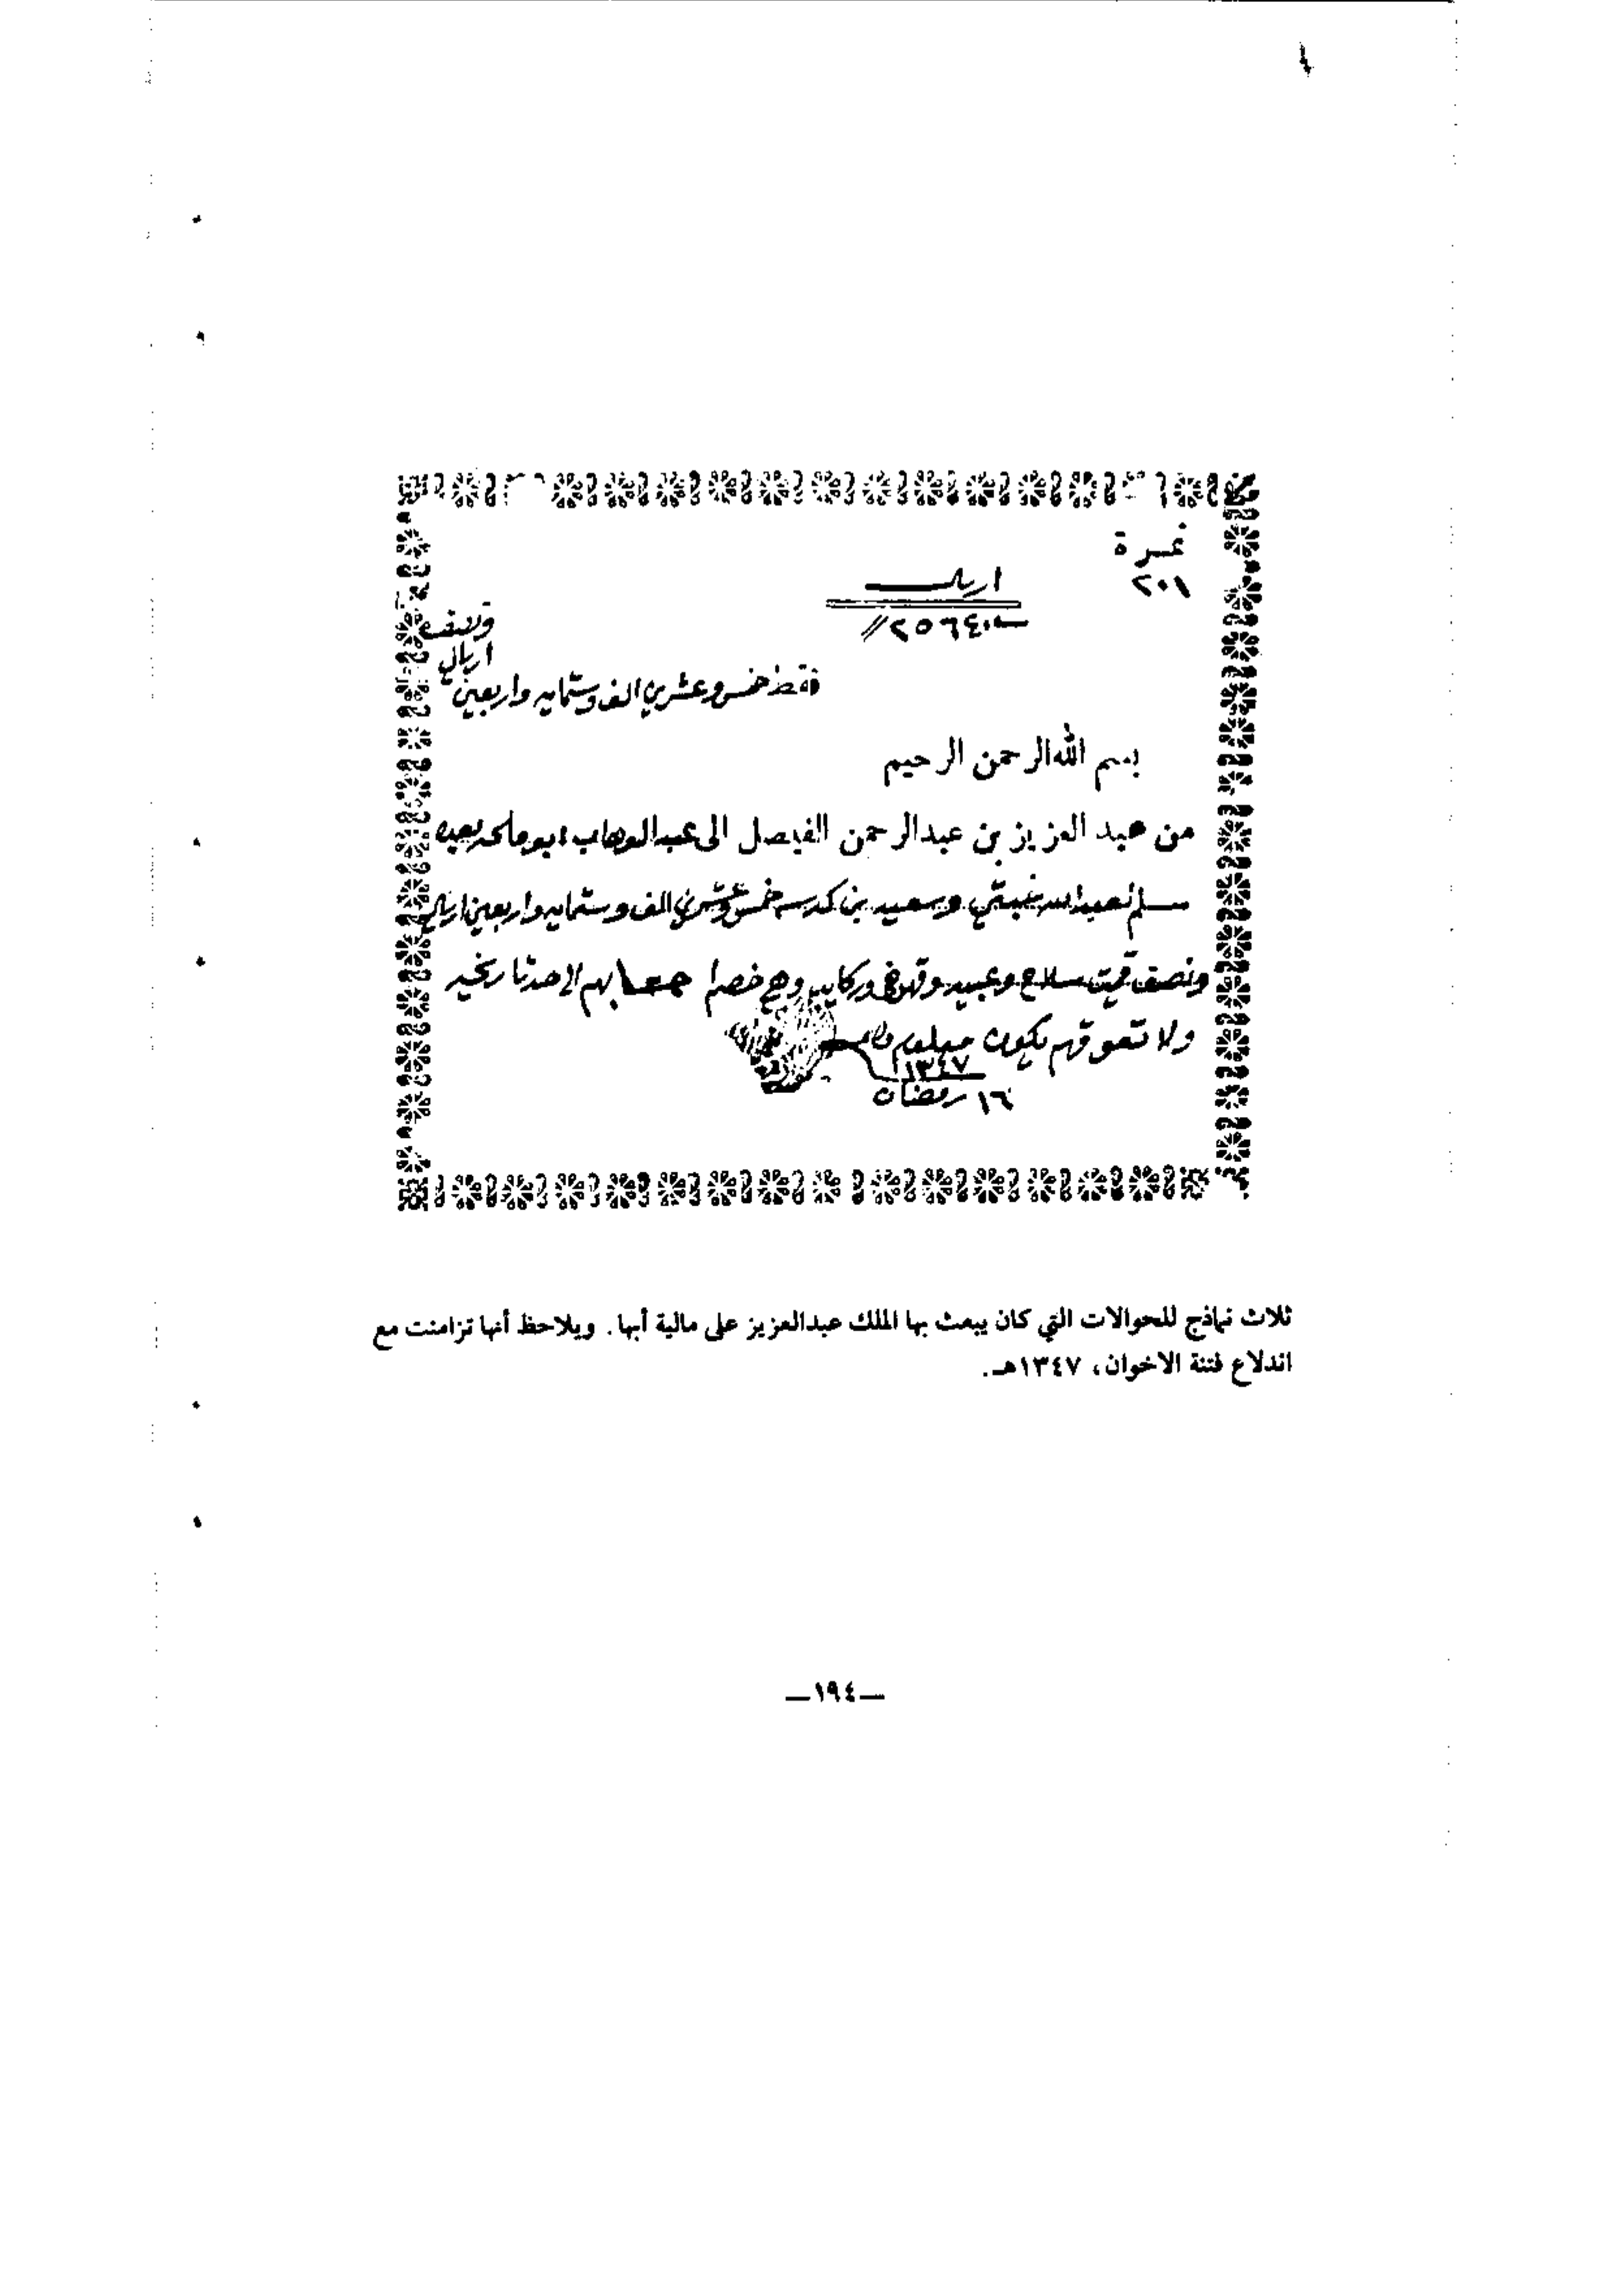 نمرة
٢٠١
اريال
٢٥٦٤٠
ونصف
اريال
فقط خمس وعشرين الف وستمايه واربعين
بسم الله الرحمن الرحيم
من عبد العزيز بن عبدالرحمن الفيصل الى عبدالوهاب ابو ملحه بعده
سلم لعبدالله وسعيد بن خمس وعشرين الف وستمايه واربعين اريال
ونصف قيمت سلاح وعبيد وقهوة وركايب
ولا تعوقهم يكون معلوم
١٣٤٧
١٦ رمضان
ثلاث نماذج للحوالات التي كان يبعث بها الملك عبدالعزيز على مالية أبها. ويلاحظ أنها تزامنت مع
اندلاع فتنة الاخوان، ١٣٤٧هـ.
—١٩٤—